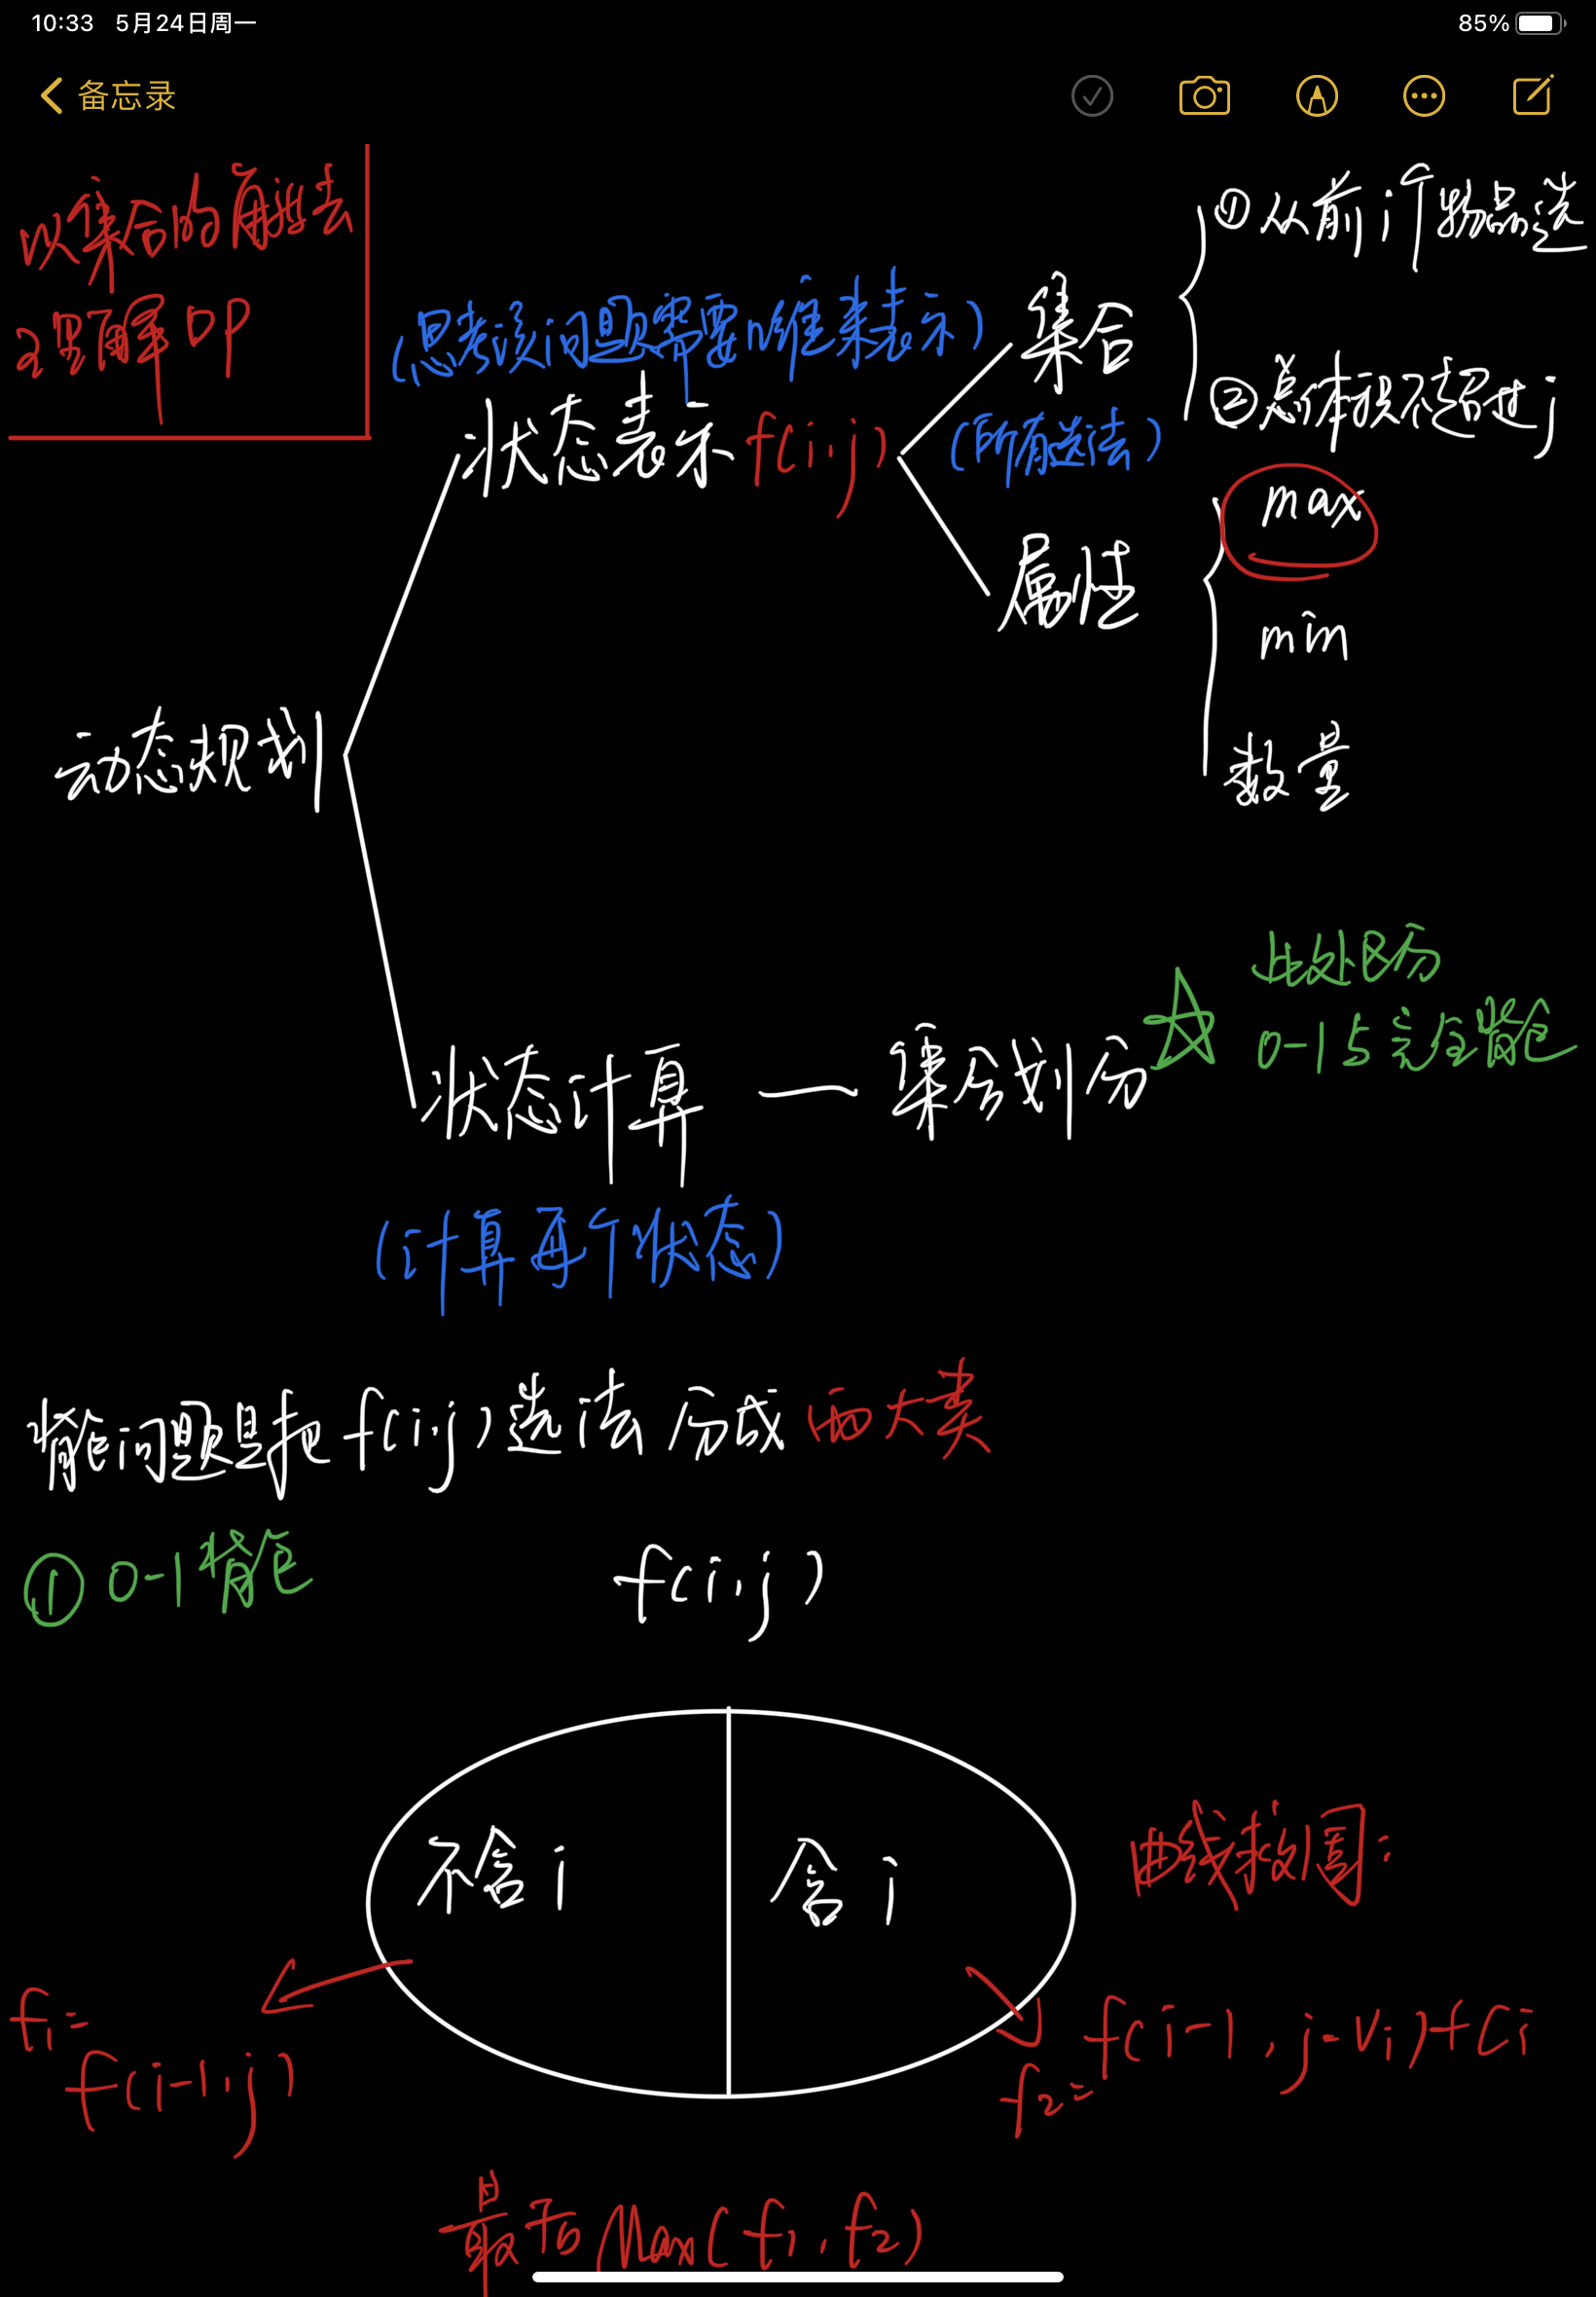 10:33 5月24日周一
85%
备忘录
以集合的角度去
理解DP
(思考该问题需要n维来表示)
状态表示 f(i,j)
集合
(所有选法)
①从前i个物品选
②总体积不超过j
属性
max
min
数量
动态规划
状态计算 — 集合划分
此处区分
0-1与完全背包
(计算每个状态)
背包问题是把f(i,j)选法分成两大类
①0-1背包
f(i,j)
不含i
含i
曲线救国:
f1=
f(i-1,j)
f2=f(i-1,j-Vi)+Ci
最后Max(f1,f2)